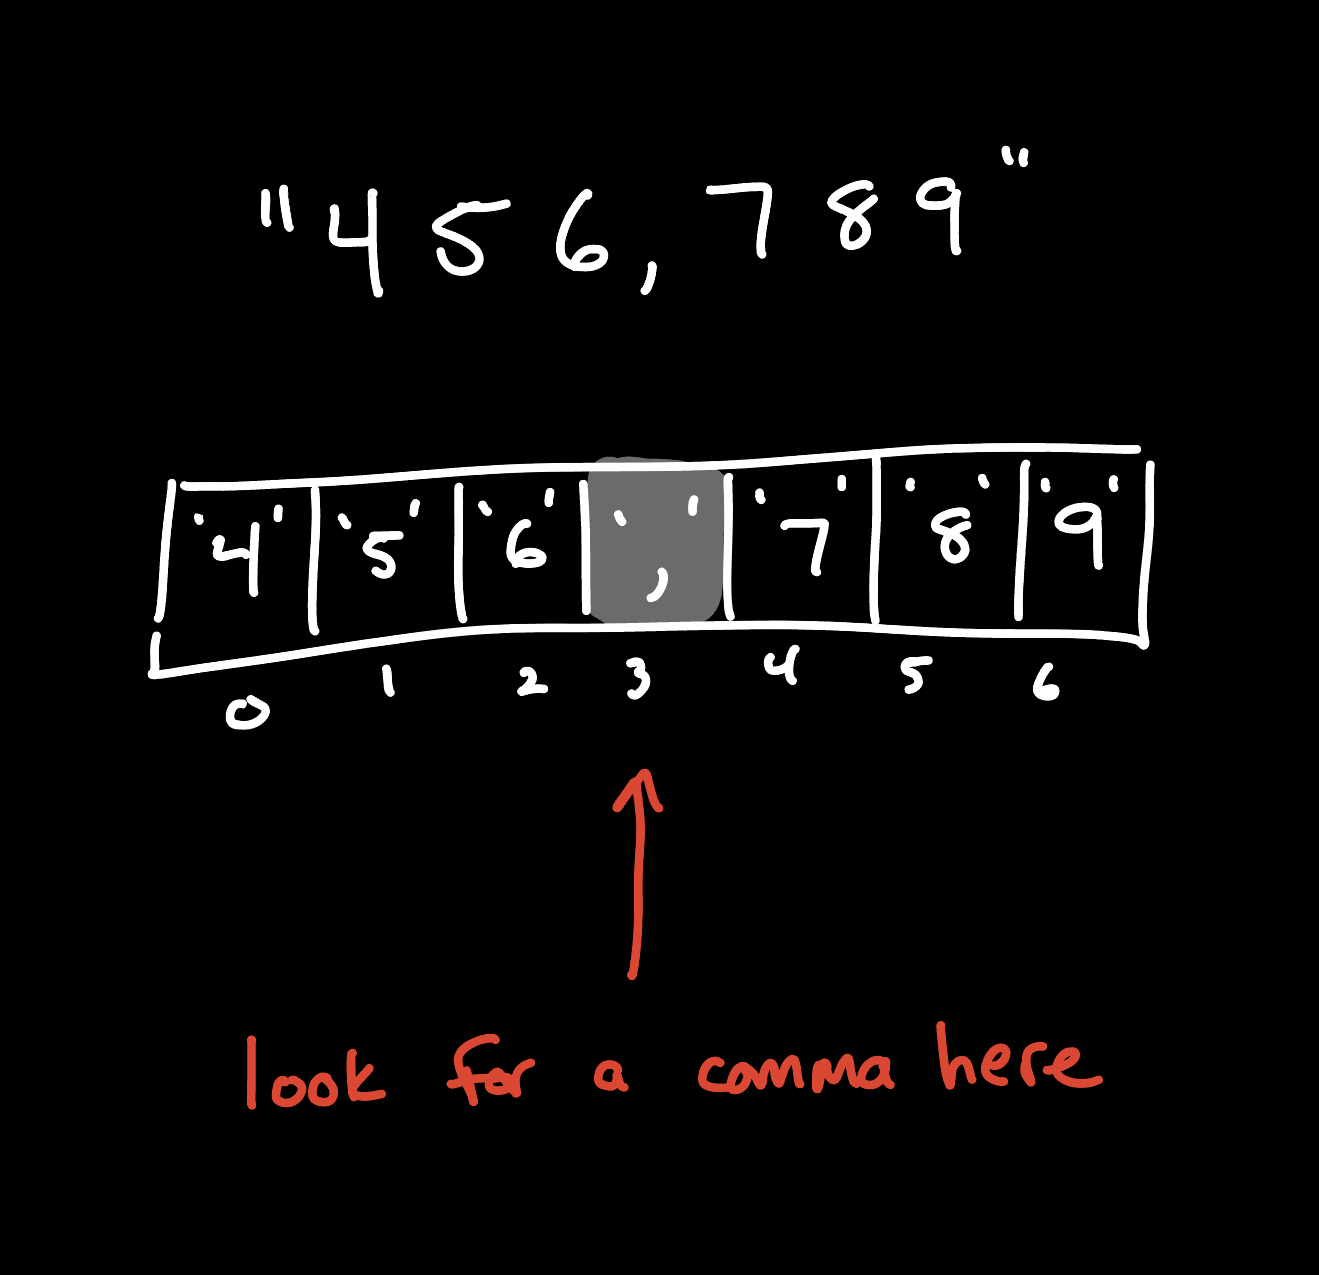 "456,789"
'4' '5' '6' ',' '7' '8' '9'
0 1 2 3 4 5 6
look for a comma here